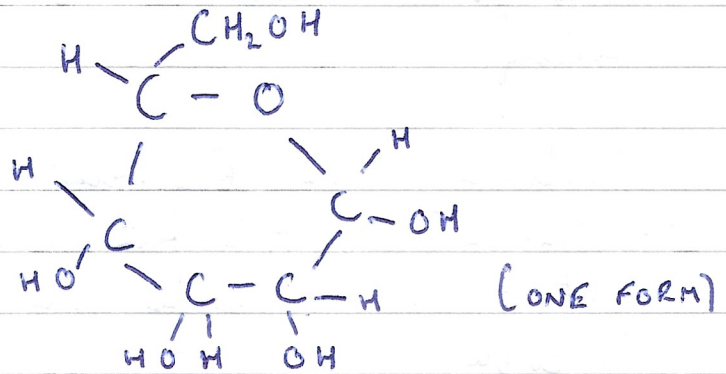 CH₂OH
H
C - O
H
H
C - OH
C
HO
C - C - H
(ONE FORM)
HO H OH